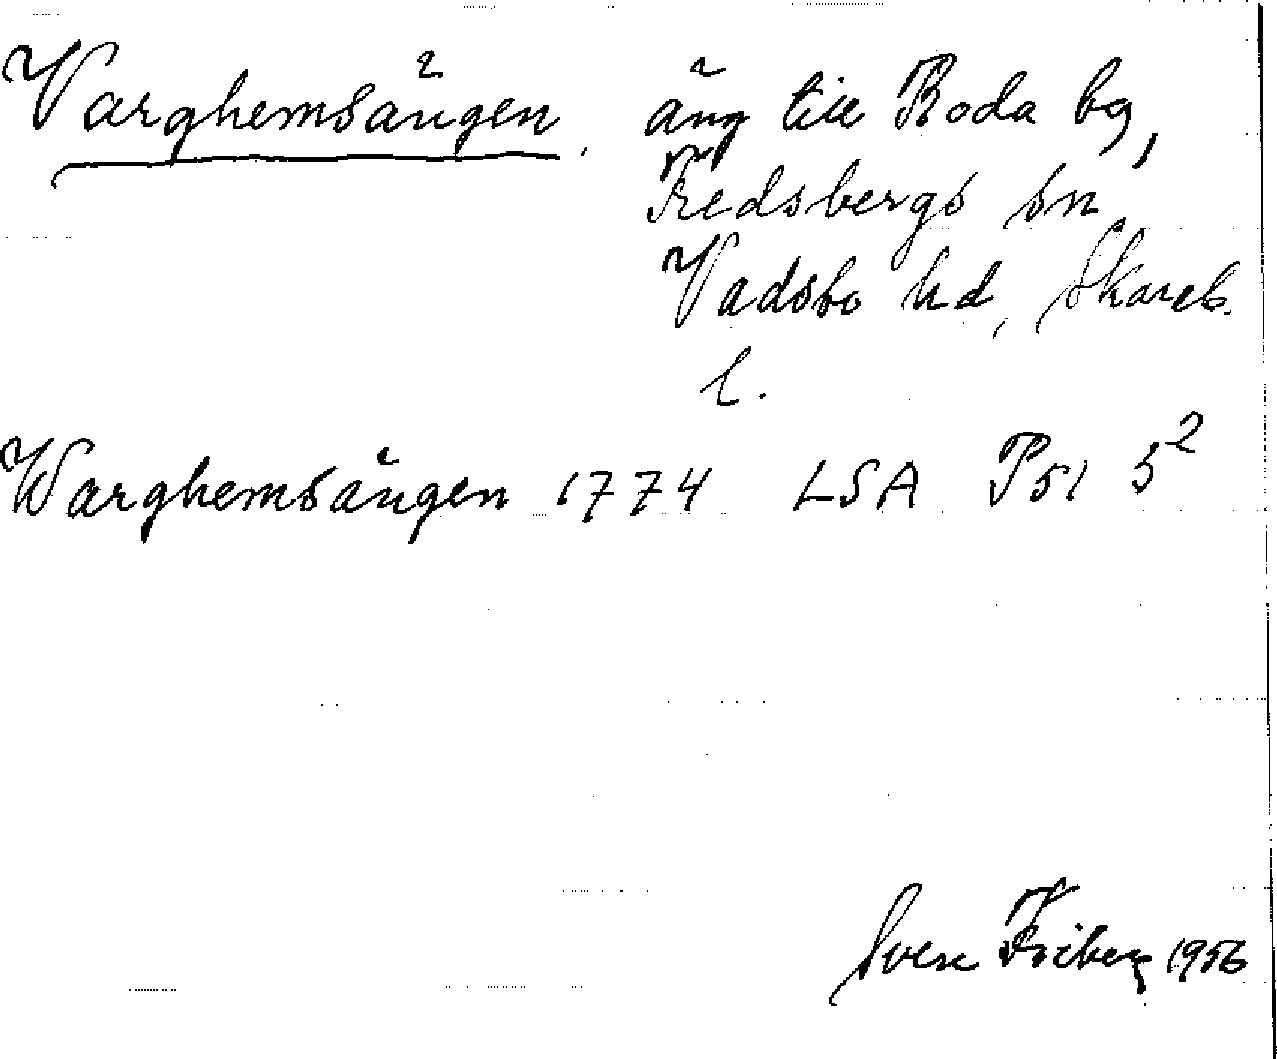 Varghemsängen. äng till Roda bg,
Fredsbergs sn
Vadsbo hd, Skarab.
l.
Warghemsängen 1774 LSA P51 5²
Sven Friberg 1956